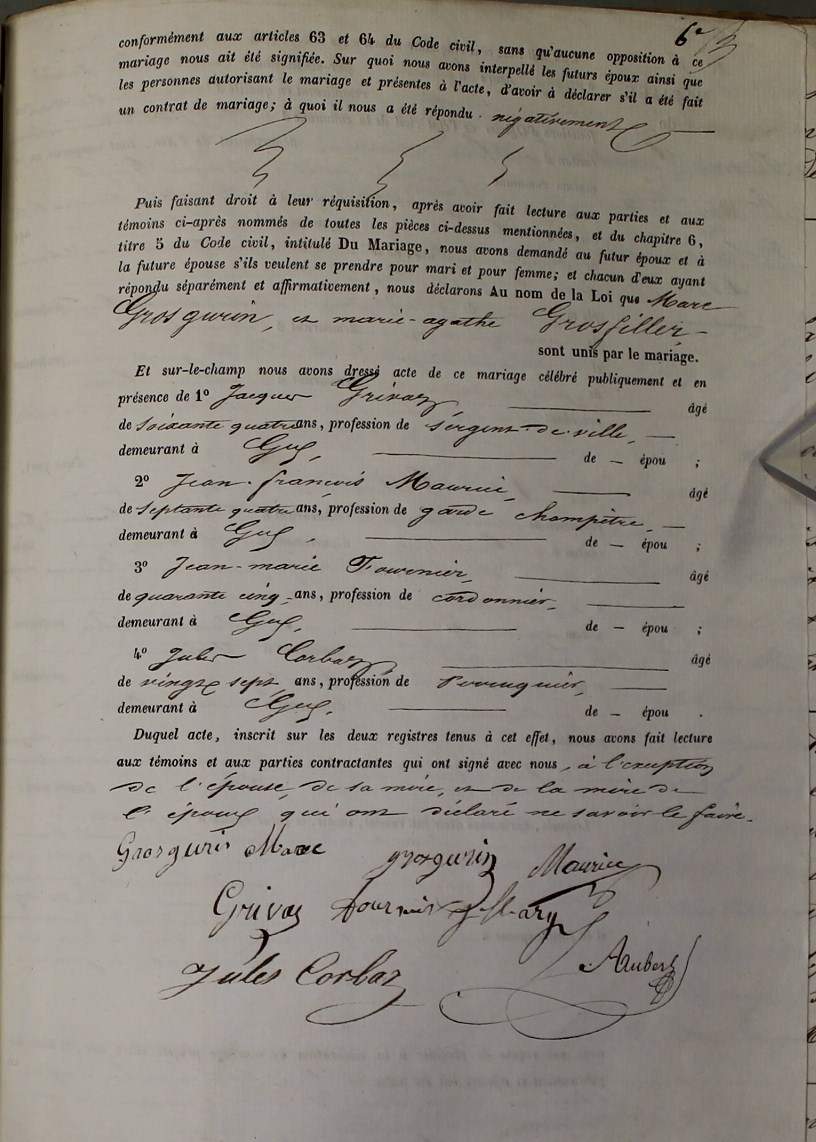 6e
conformément aux articles 63 et 64 du Code civil, sans qu'aucune opposition à ce
mariage nous ait été signifiée. Sur quoi nous avons interpellé les futurs époux ainsi que
les personnes autorisant le mariage et présentes à l'acte, d'avoir à déclarer s'il a été fait
un contrat de mariage; à quoi il nous a été répondu négativement
Puis faisant droit à leur réquisition, après avoir fait lecture aux parties et aux
témoins ci-après nommés de toutes les pièces ci-dessus mentionnées, et du chapitre 6,
titre 5 du Code civil, intitulé Du Mariage, nous avons demandé au futur époux et à
la future épouse s'ils veulent se prendre pour mari et pour femme; et chacun d'eux ayant
répondu séparément et affirmativement, nous déclarons Au nom de la Loi que Marc
Grosgurin, et marie-agathe Grosfiller,
sont unis par le mariage.
Et sur-le-champ nous avons dressé acte de ce mariage célébré publiquement et en
présence de 1º Jacques Grivaz, âgé
de soixante quatre ans, profession de sergent-de-ville,
demeurant à Gex, de — épou ;
2º Jean-françois Maurice, âgé
de septante quatre ans, profession de garde champêtre,
demeurant à Gex, de — épou ;
3º Jean-marie Fournier, âgé
de quarante cinq ans, profession de cordonnier,
demeurant à Gex, de — épou ;
4º Jules Corbaz, âgé
de vingt sept ans, profession de Perruquier,
demeurant à Gex. de — épou .
Duquel acte, inscrit sur les deux registres tenus à cet effet, nous avons fait lecture
aux témoins et aux parties contractantes qui ont signé avec nous, à l'exception
de l'épouse, de sa mère, et de la mère de
l'époux qui ont déclaré ne savoir le faire.
Grosgurin Marc grosgurin Maurice
Grivaz fournier
Jules Corbaz